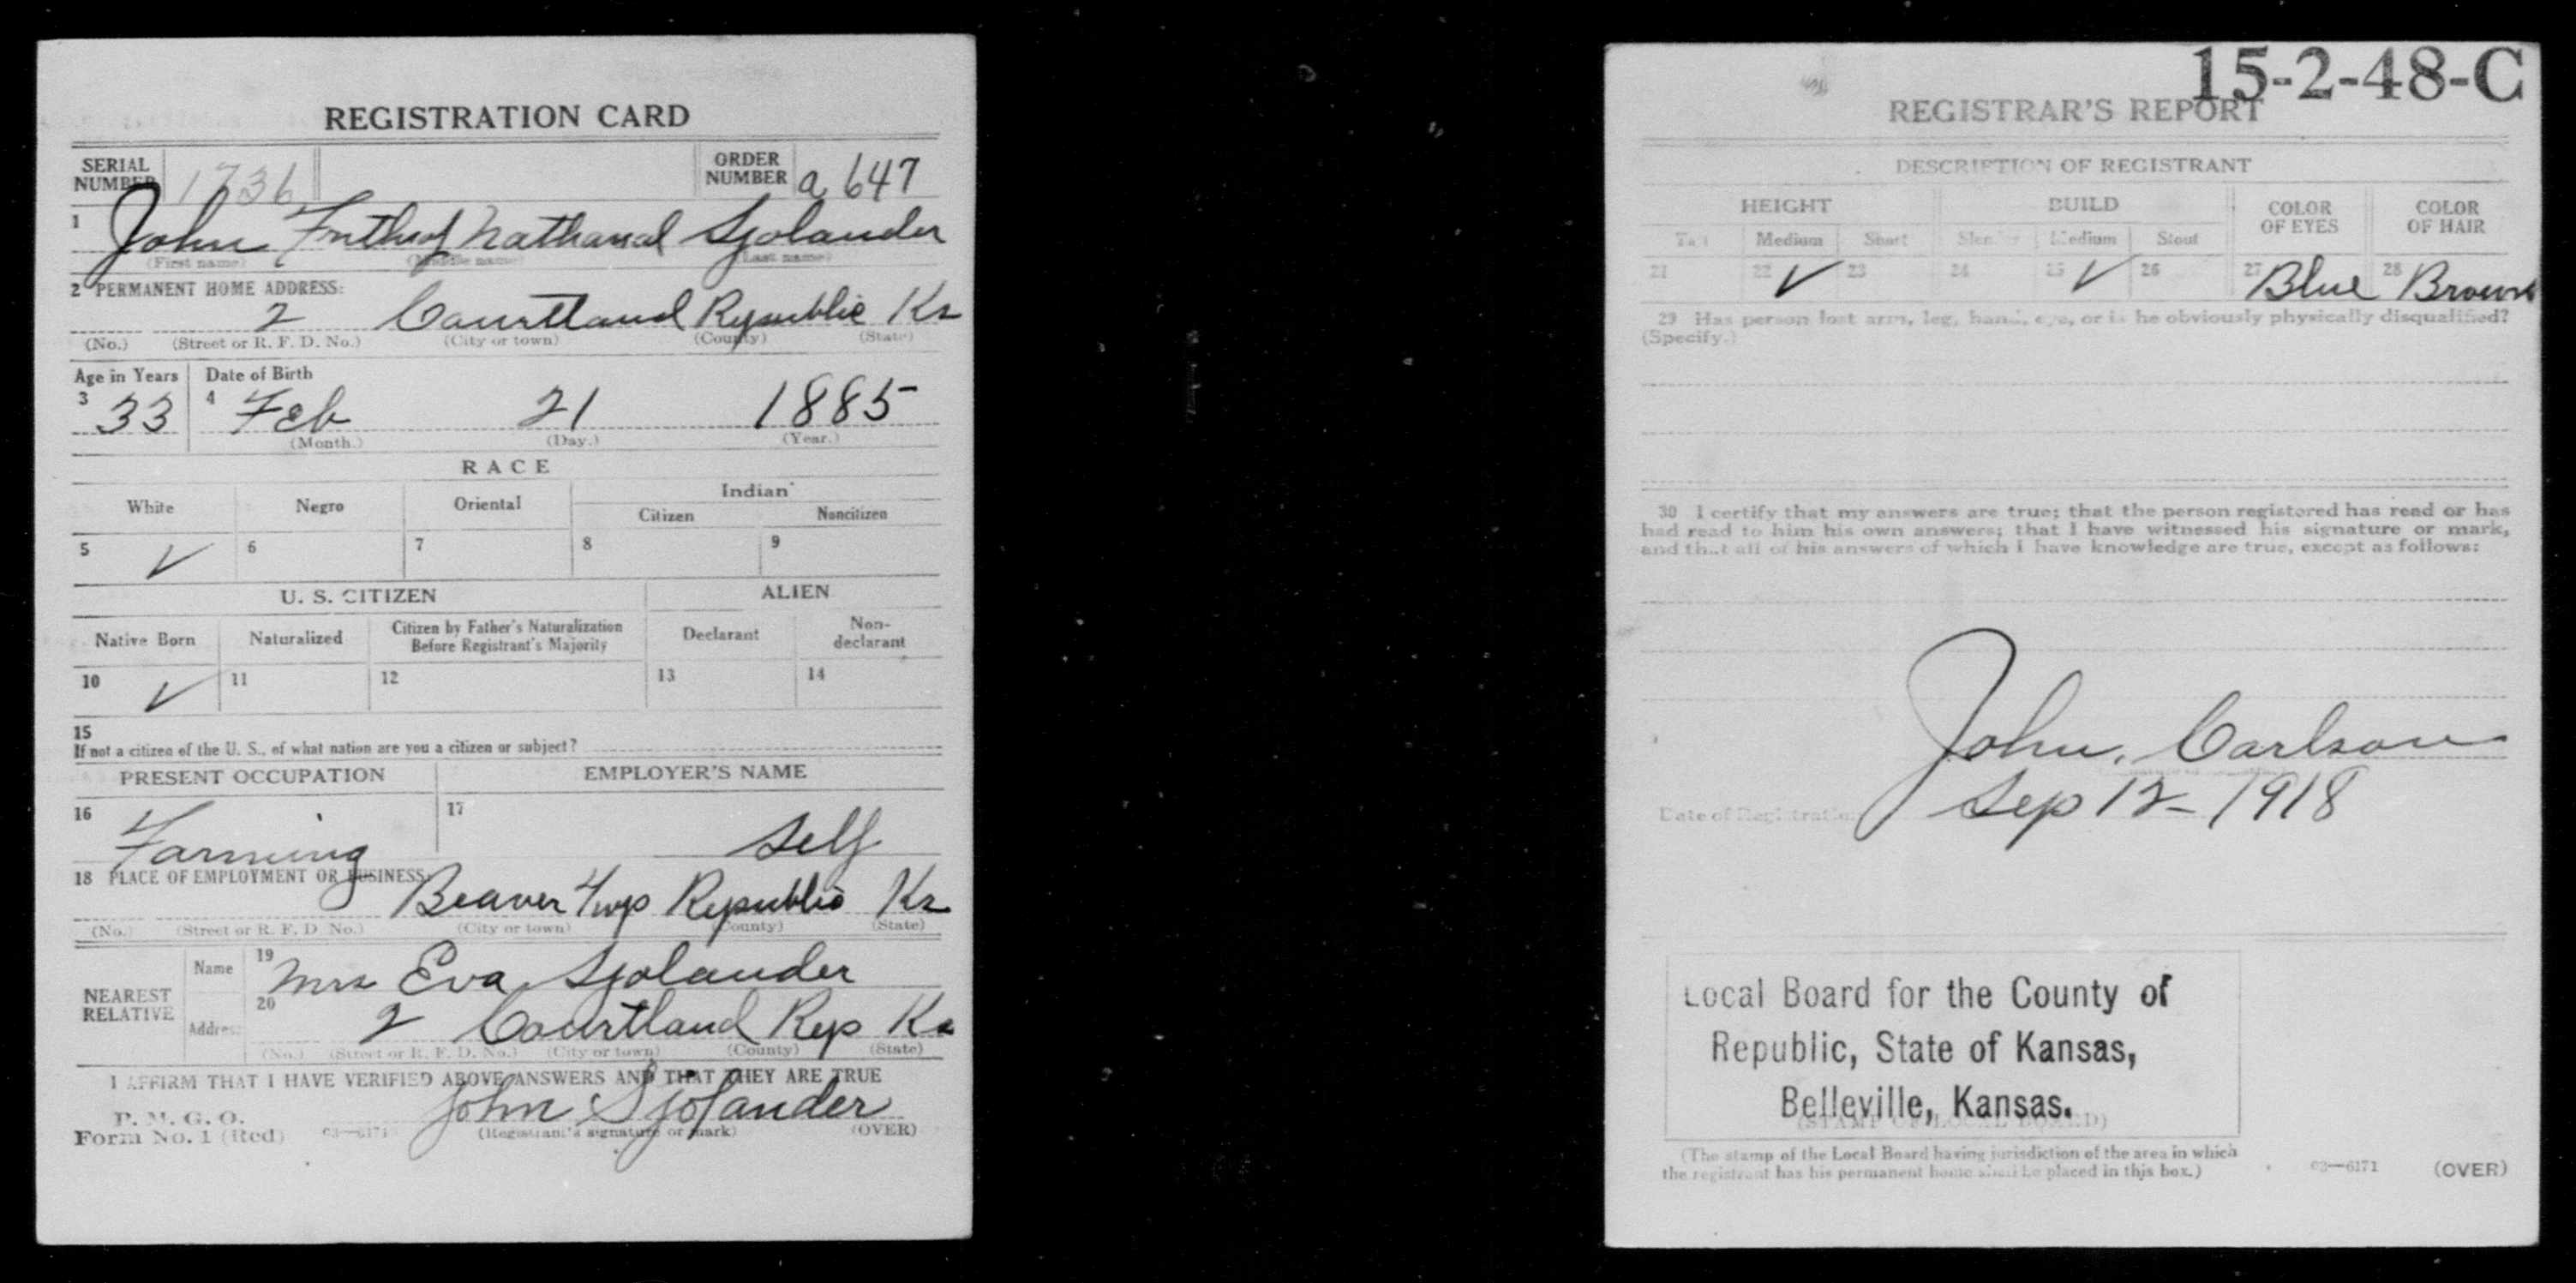 REGISTRATION CARD
SERIAL NUMBER 1736 ORDER NUMBER a 647
1 John Frithof Nathanal Sjolander
(First name) (Middle name) (Last name)
2 PERMANENT HOME ADDRESS:
2 Courtland Republic Ks
(No.) (Street or R. F. D. No.) (City or town) (County) (State)
Age in Years Date of Birth
3 33 4 Feb 21 1885
(Month.) (Day.) (Year.)
RACE
White Negro Oriental Indian
Citizen Noncitizen
5 ✓ 6 7 8 9
U. S. CITIZEN ALIEN
Native Born Naturalized Citizen by Father's Naturalization Before Registrant's Majority Declarant Non-declarant
10 ✓ 11 12 13 14
15
If not a citizen of the U. S., of what nation are you a citizen or subject?
PRESENT OCCUPATION EMPLOYER'S NAME
16 Farming 17 Self
18 PLACE OF EMPLOYMENT OR BUSINESS:
Beaver Twp Republic Ks
(No.) (Street or R. F. D. No.) (City or town) (County) (State)
NEAREST RELATIVE Name 19 Mrs Eva Sjolander
Address 20 2 Courtland Rep Ks
(No.) (Street or R. F. D. No.) (City or town) (County) (State)
I AFFIRM THAT I HAVE VERIFIED ABOVE ANSWERS AND THAT THEY ARE TRUE
P. M. G. O.
Form No. 1 (Red) 03—6171 John Sjolander
(Registrant's signature or mark) (OVER)
15-2-48-C
REGISTRAR'S REPORT
DESCRIPTION OF REGISTRANT
HEIGHT BUILD COLOR OF EYES COLOR OF HAIR
Tall Medium Short Slender Medium Stout
21 22 ✓ 23 24 25 ✓ 26 27 Blue 28 Brown
29 Has person lost arm, leg, hand, eye, or is he obviously physically disqualified?
(Specify.)
30 I certify that my answers are true; that the person registered has read or has
had read to him his own answers; that I have witnessed his signature or mark,
and that all of his answers of which I have knowledge are true, except as follows:
John. Carlson
Date of Registration Sep 12 - 1918
Local Board for the County of
Republic, State of Kansas,
Belleville, Kansas.
(STAMP OF LOCAL BOARD)
(The stamp of the Local Board having jurisdiction of the area in which
the registrant has his permanent home shall be placed in this box.)
03—6171 (OVER)